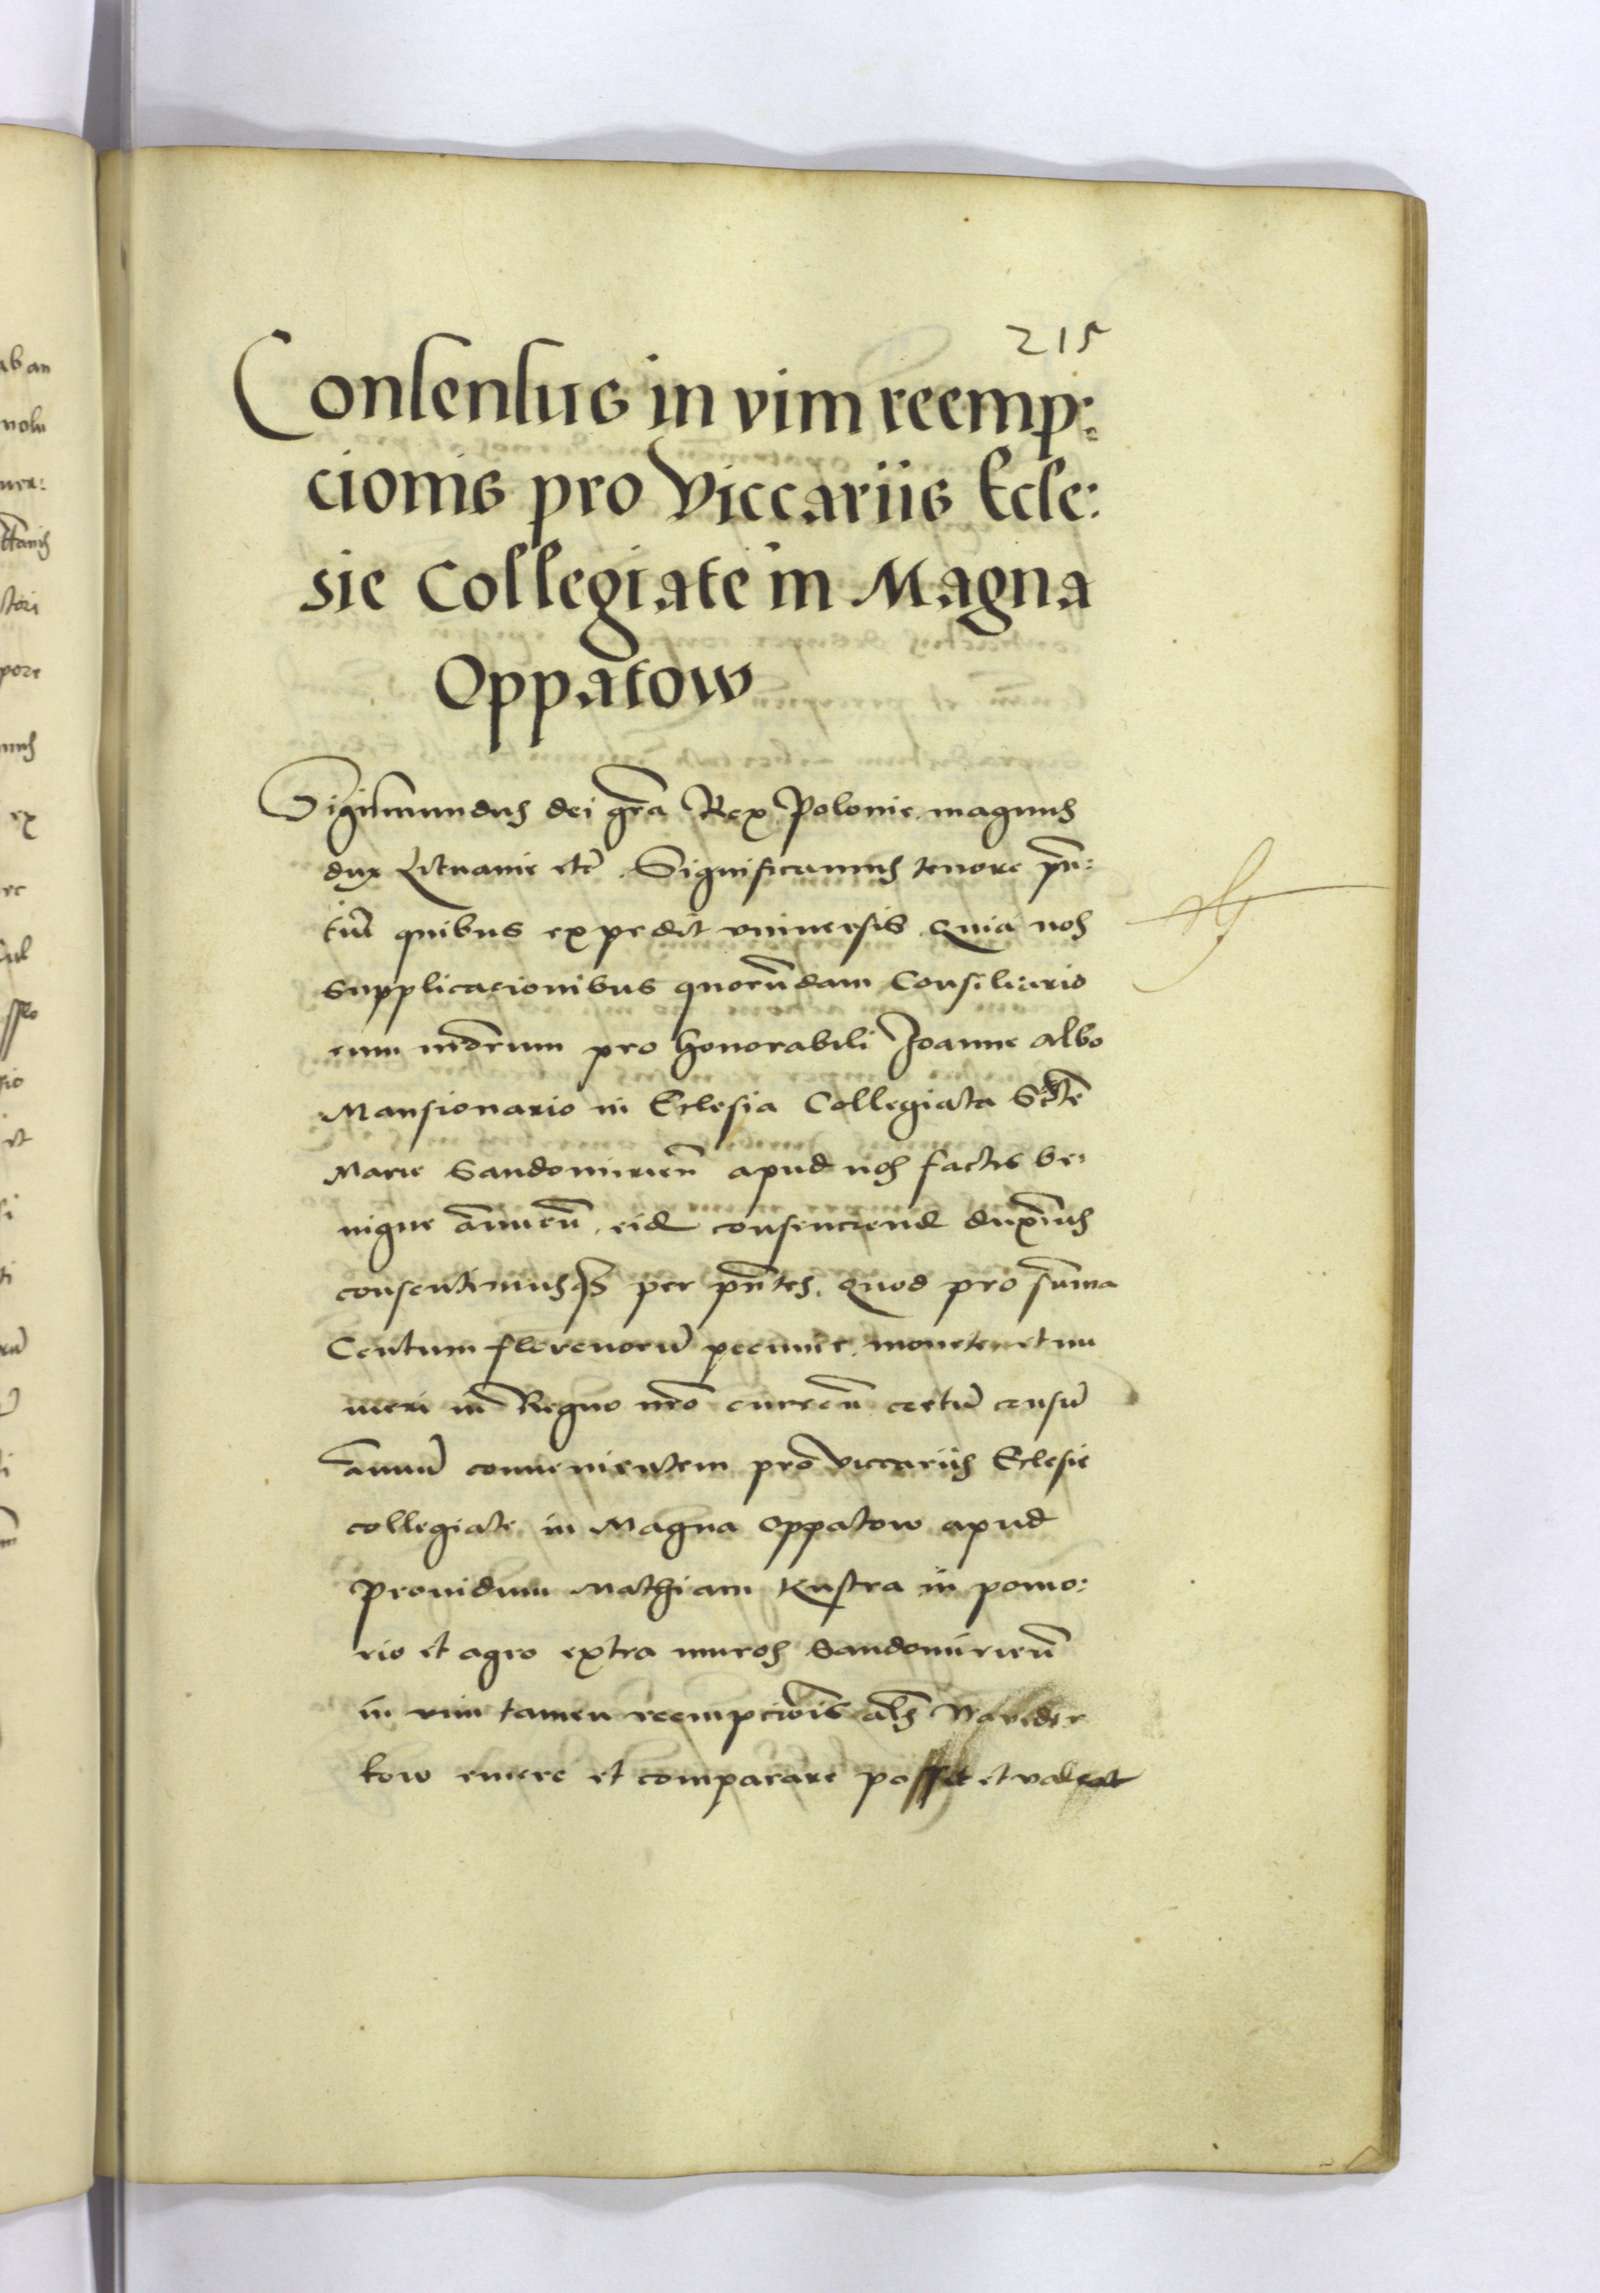 215
Consensus in vim reemp:
cionis pro Viccariis Ecle:
sie Collegiate in Magna
Oppatow
Sigismundus dei gra Rex Polonie magnus
dux Lituanie etc. Significamus tenore pn:
tiu quibus expedit universis Quia nos
supplicacionibus quorundam Consiliario
rum nrorum pro honorabili Joanne Albo
Mansionario in Eclesia Collegiata Scte
Marie Sandomirien apud nos factis be:
nigne annuen. eid consenciend duximus
consentimusq per pntes. Quod pro suma
Centum florenoru pecunie monete et nu
meri in Regno nro curren certu censu
annuu convenientem pro viccariis Eclesie
collegiate in Magna Oppatow apud
Providum Mathiam Kustra in pomo:
rio et agro extra muros Sandomirien
in vim tamen reempcionis als Naveder
kow emere et comparare possit et valeat